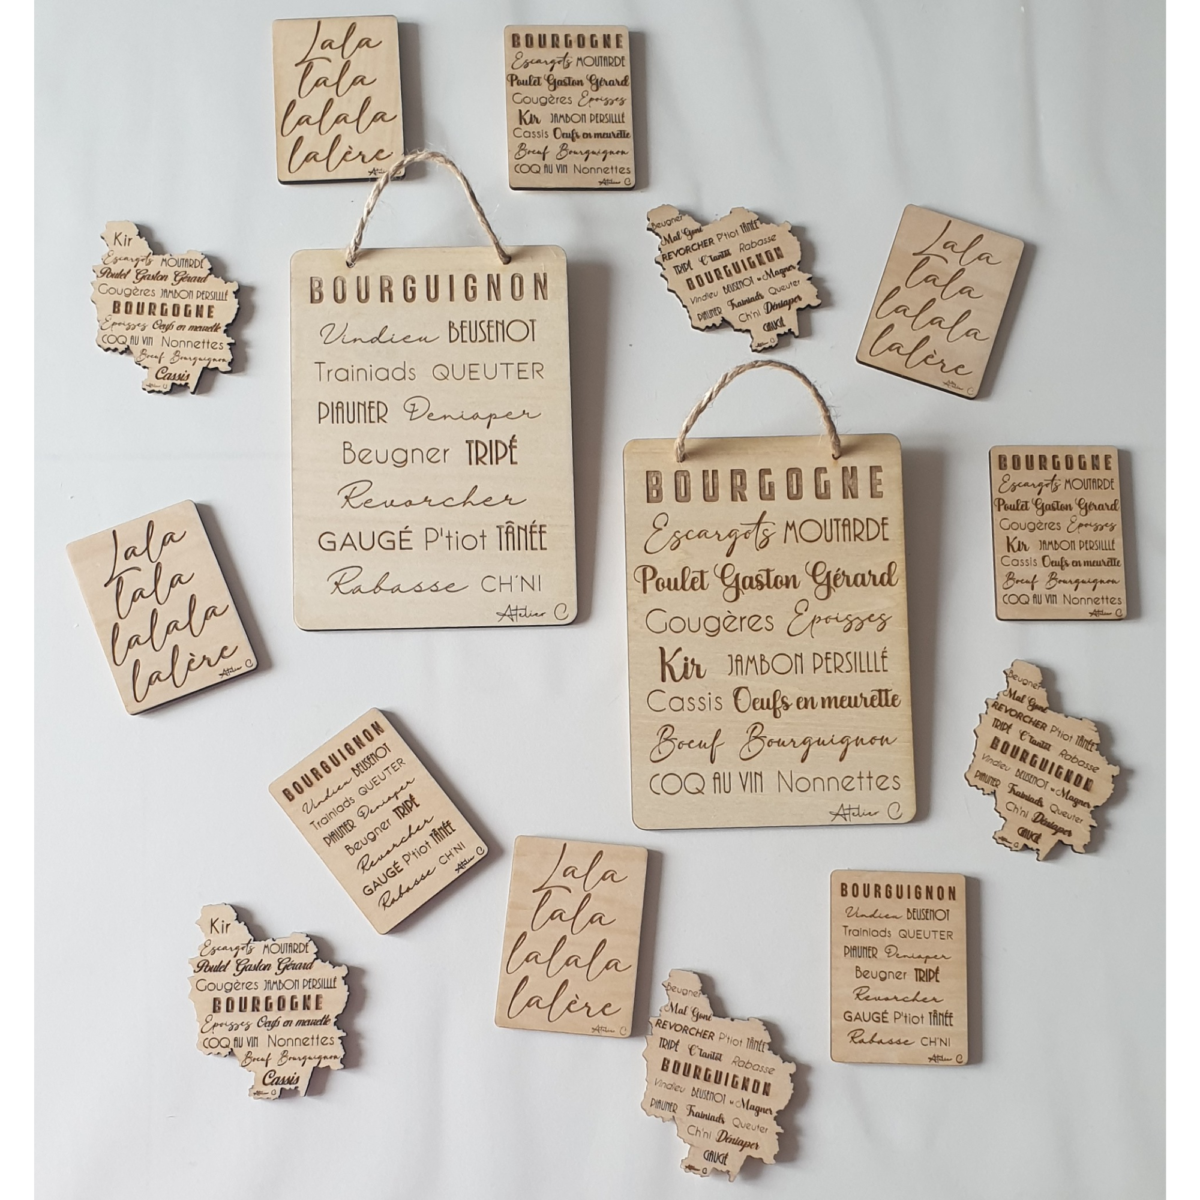 Lala
lala
lalala
lalère
Atelier C
BOURGOGNE
Escargots MOUTARDE
Poulet Gaston Gérard
Gougères Epoisses
Kir JAMBON PERSILLLÉ
Cassis Oeufs en meurette
Boeuf Bourguignon
COQ AU VIN Nonnettes
Atelier C
Kir
Escargots MOUTARDE
Poulet Gaston Gérard
Gougères JAMBON PERSILLÉ
BOURGOGNE
Epoisses Oeufs en meurette
COQ AU VIN Nonnettes
Boeuf Bourguignon
Cassis
Atelier C
BOURGUIGNON
Vindieu BEUSENOT
Trainiads QUEUTER
PIAUNER Deniaper
Beugner TRIPÉ
Revorcher
GAUGÉ P'tiot TÂNÉE
Rabasse CH'NI
Atelier C
Beugner
Mal Goné
REVORCHER P'tiot TÂNÉE
TRIPÉ C'tantôt Rabasse
BOURGUIGNON
Vindieu BEUSENOT Magner
PIAUNER Trainiads Queuter
Ch'ni Déniaper
GAUGÉ
Lala
lala
lalala
lalère
Atelier C
BOURGOGNE
Escargots MOUTARDE
Poulet Gaston Gérard
Gougères Epoisses
Kir JAMBON PERSILLLÉ
Cassis Oeufs en meurette
Boeuf Bourguignon
COQ AU VIN Nonnettes
Atelier C
BOURGOGNE
Escargots MOUTARDE
Poulet Gaston Gérard
Gougères Epoisses
Kir JAMBON PERSILLLÉ
Cassis Oeufs en meurette
Boeuf Bourguignon
COQ AU VIN Nonnettes
Atelier C
Lala
lala
lalala
lalère
Atelier C
Beugner
Mal Goné
REVORCHER P'tiot TÂNÉE
TRIPÉ C'tantôt Rabasse
BOURGUIGNON
Vindieu BEUSENOT Magner
PIAUNER Trainiads Queuter
Ch'ni Déniaper
GAUGÉ
BOURGUIGNON
Vindieu BEUSENOT
Trainiads QUEUTER
PIAUNER Deniaper
Beugner TRIPÉ
Revorcher
GAUGÉ P'tiot TÂNÉE
Rabasse CH'NI
Atelier C
Lala
lala
lalala
lalère
Atelier C
BOURGUIGNON
Vindieu BEUSENOT
Trainiads QUEUTER
PIAUNER Deniaper
Beugner TRIPÉ
Revorcher
GAUGÉ P'tiot TÂNÉE
Rabasse CH'NI
Atelier C
Kir
Escargots MOUTARDE
Poulet Gaston Gérard
Gougères JAMBON PERSILLÉ
BOURGOGNE
Epoisses Oeufs en meurette
COQ AU VIN Nonnettes
Boeuf Bourguignon
Cassis
Atelier C
Beugner
Mal Goné
REVORCHER P'tiot TÂNÉE
TRIPÉ C'tantôt Rabasse
BOURGUIGNON
Vindieu BEUSENOT Magner
PIAUNER Trainiads Queuter
Ch'ni Déniaper
GAUGÉ
Atelier C